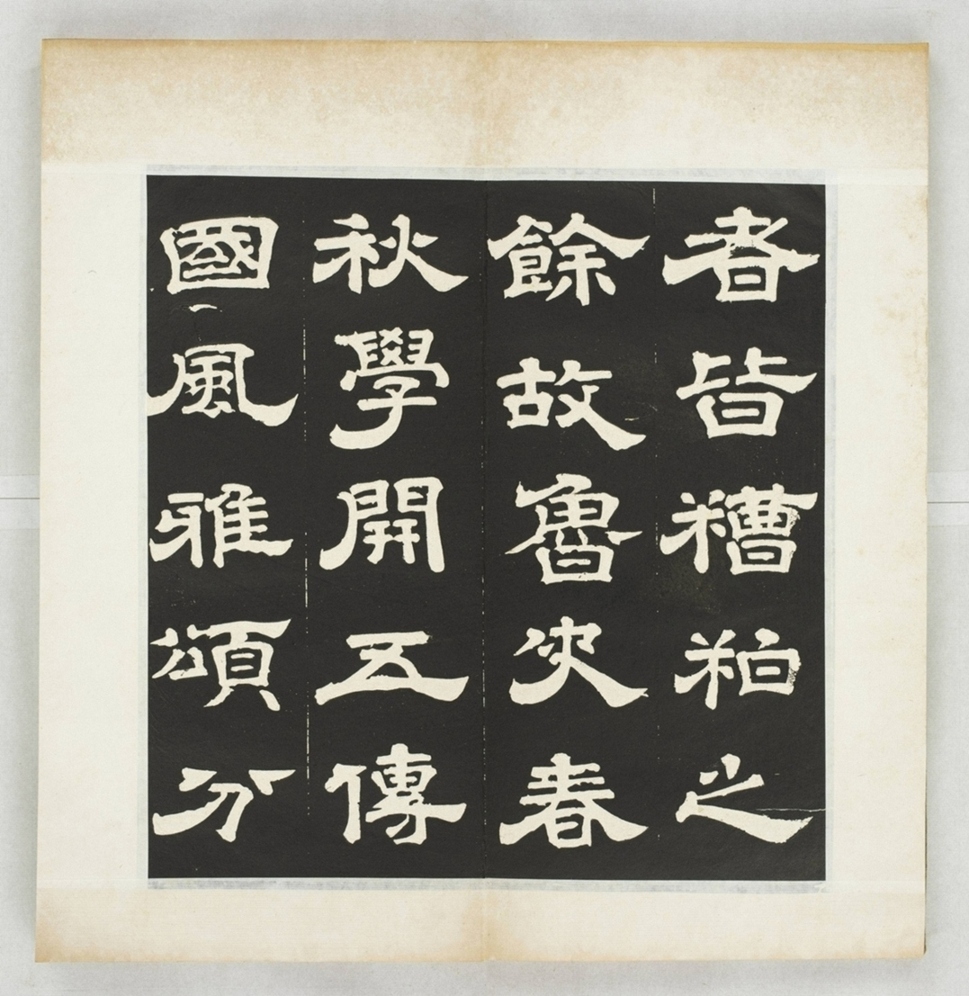 者皆糟粕之
餘故魯史春
秋學開五傳
國風雅頌分